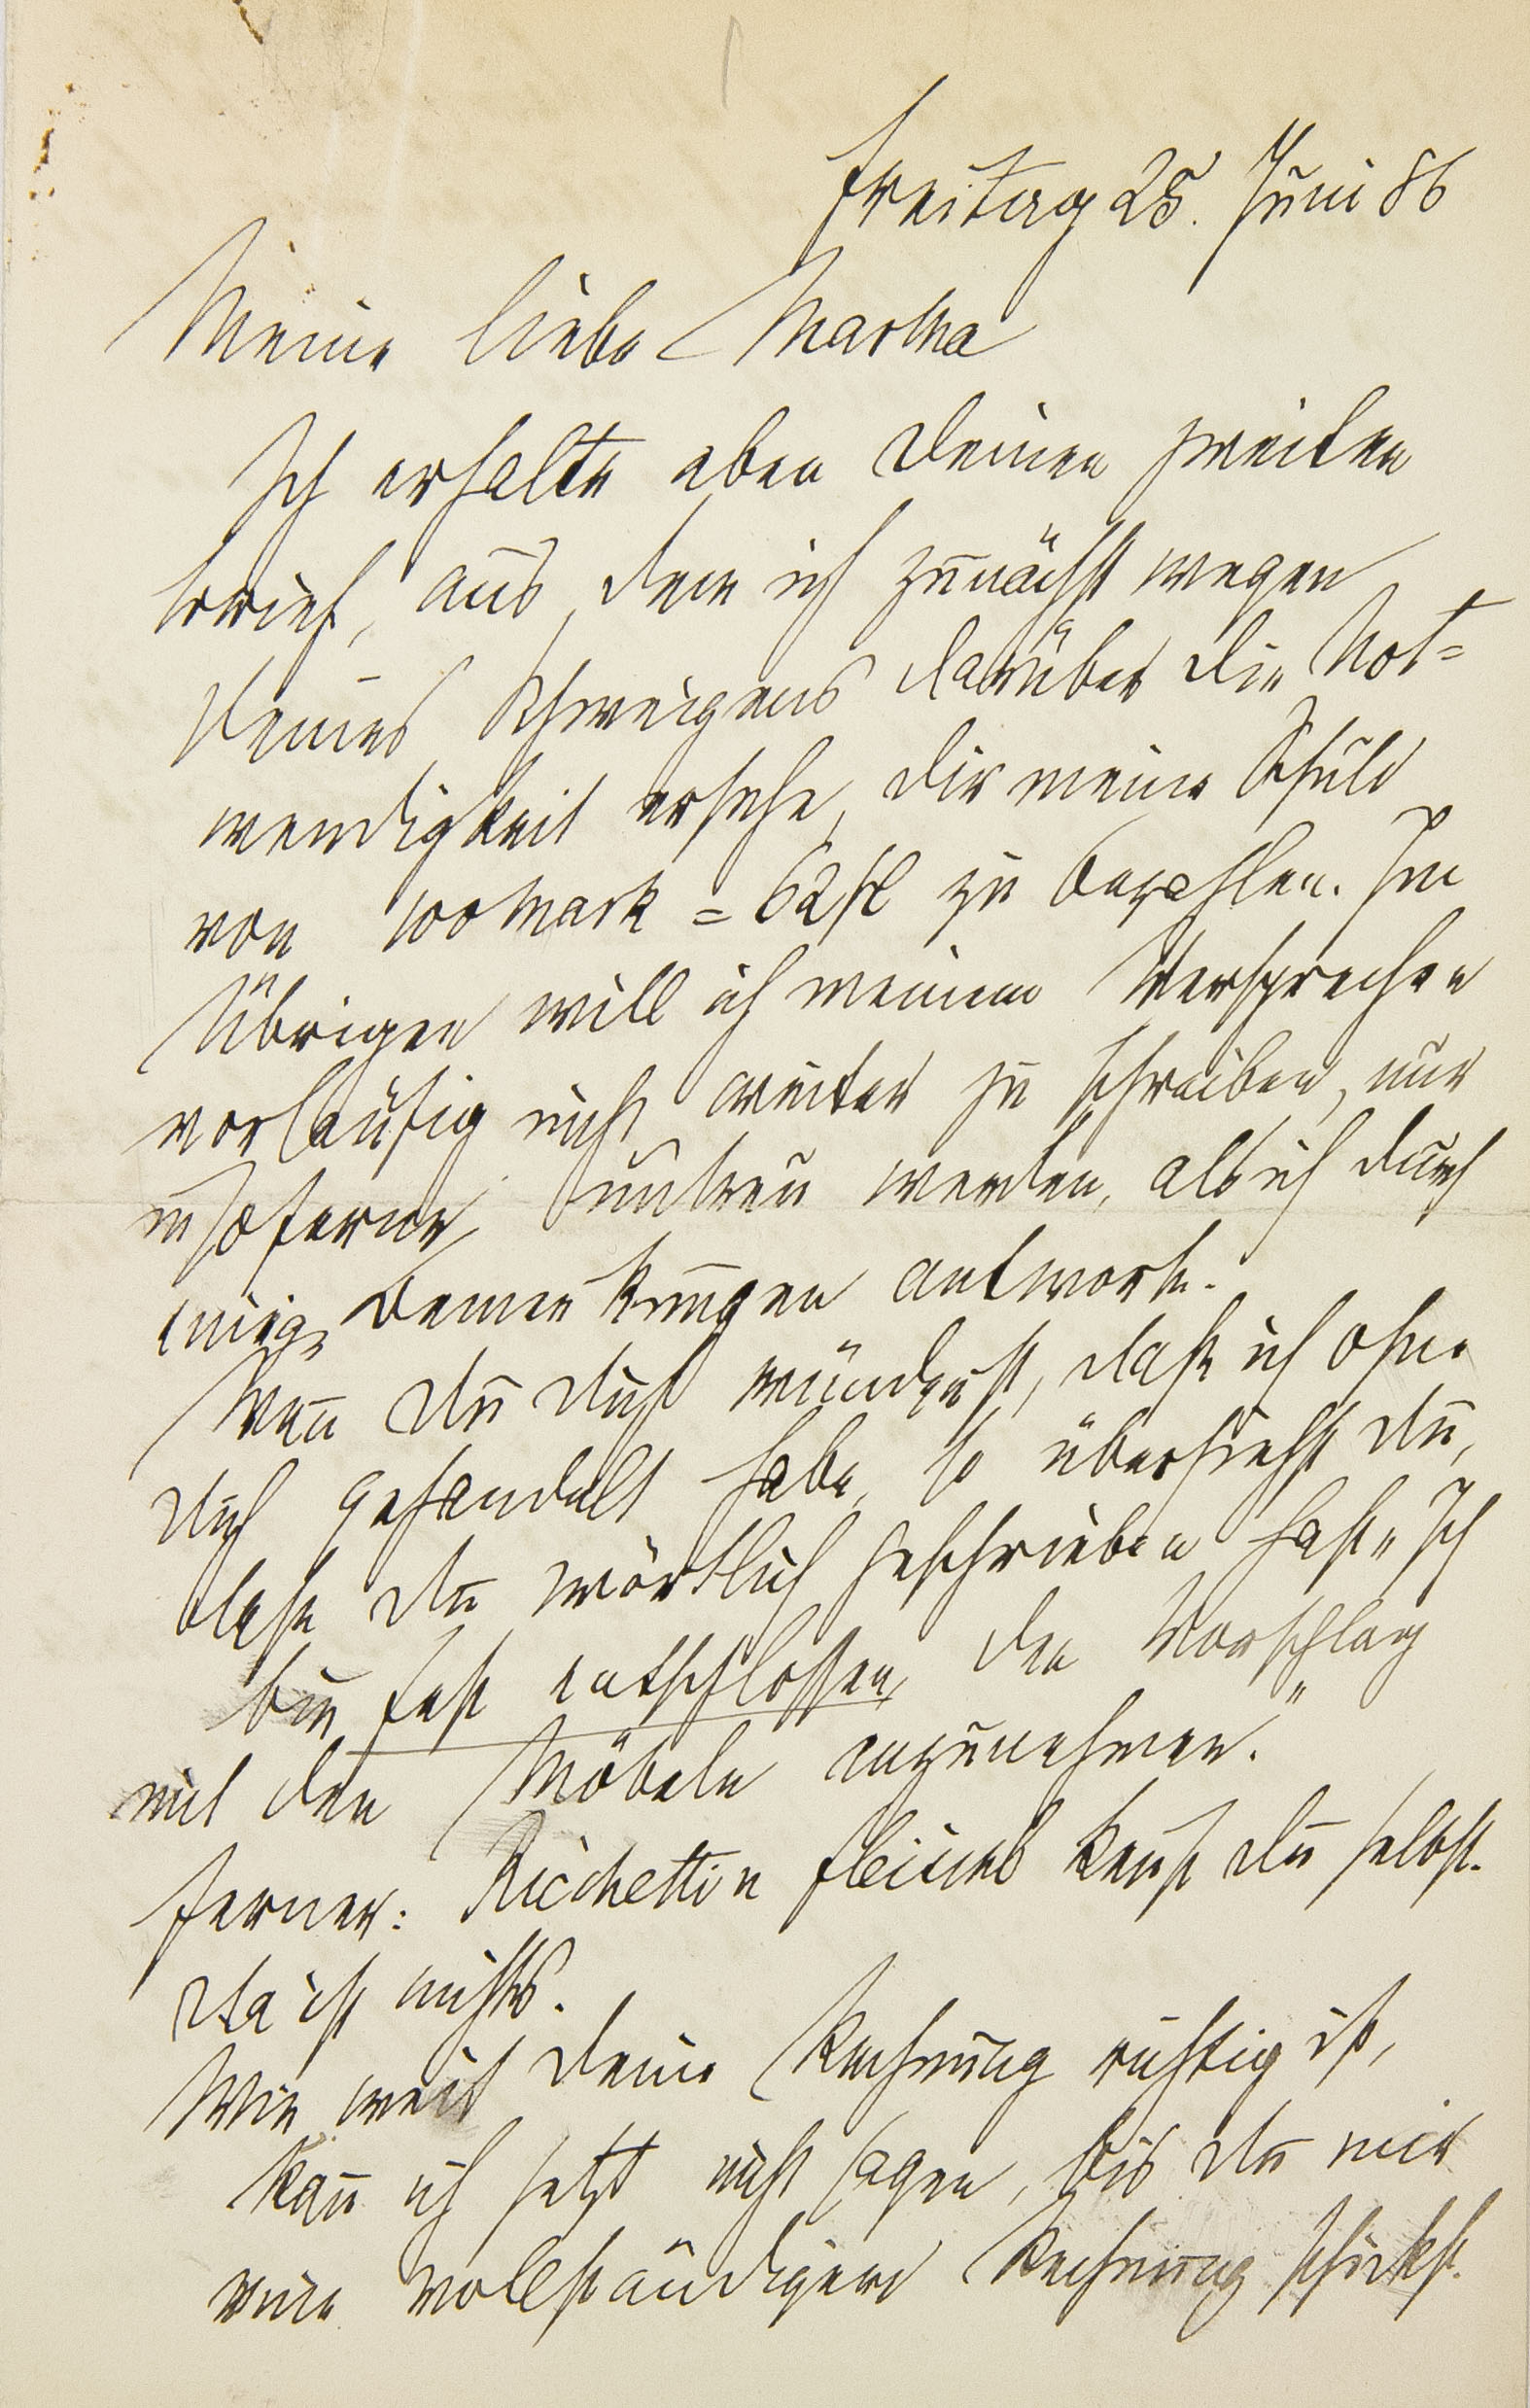 Freitag 25. Juni 86
Meine liebe Martha
Ich erhalte eben Deinen zweiten
Brief, aus dem ich zunächst wegen
Deines Schweigens darüber die Not=
wendigkeit ersehe, Dir meine Schuld
von 100 Mark = 62 fl zu bezahlen. Im
Übrigen will ich meinem Versprechen
vorläufig nicht weiter zu schreiben, nur
insoferne untreu werden, als ich durch
einige Bemerkungen antworte.
Wenn Du Dich wunderst, daß ich ohne
Dich gehandelt habe, so übersiehst Du,
daß Du wörtlich geschrieben hast „Ich
bin fest entschlossen, den Vorschlag
mit den Möbeln anzunehmen."
Ferner: Ricchetti u Fleischl kennst Du selbst.
Da ist nichts.
Wie weit Deine Rechnung richtig ist,
kann ich jetzt nicht sagen, bis Du mir
eine vollständigere Rechnung schickst.